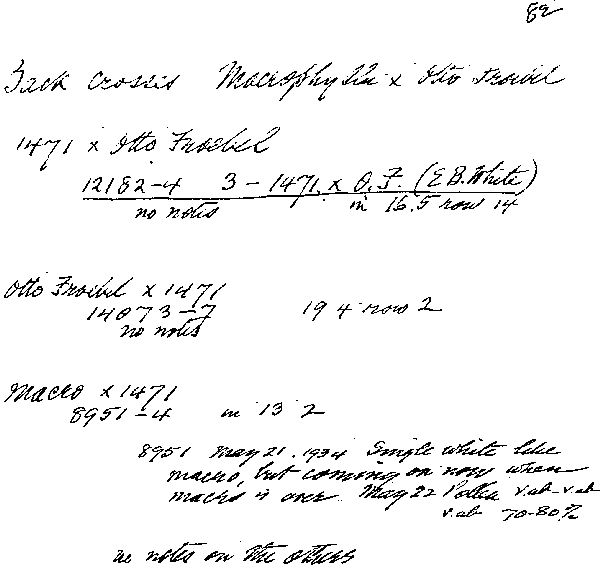 82
Back crosses Macrophylla x Otto Froebel
1471 x Otto Froebel
12182-4 3-1471. x O.F. (E B. White)
no notes in 16.5 row 14
Otto Froebel x 1471
14073-7 19 4 row 2
no notes
Macro x 1471
8951-4 in 13 2
8951 May 21. 1934 Single white like
macro, but coming on now when
macro is over. May 22 Pollen v.ab-v.ab
v.ab 70-80%
no notes on the others